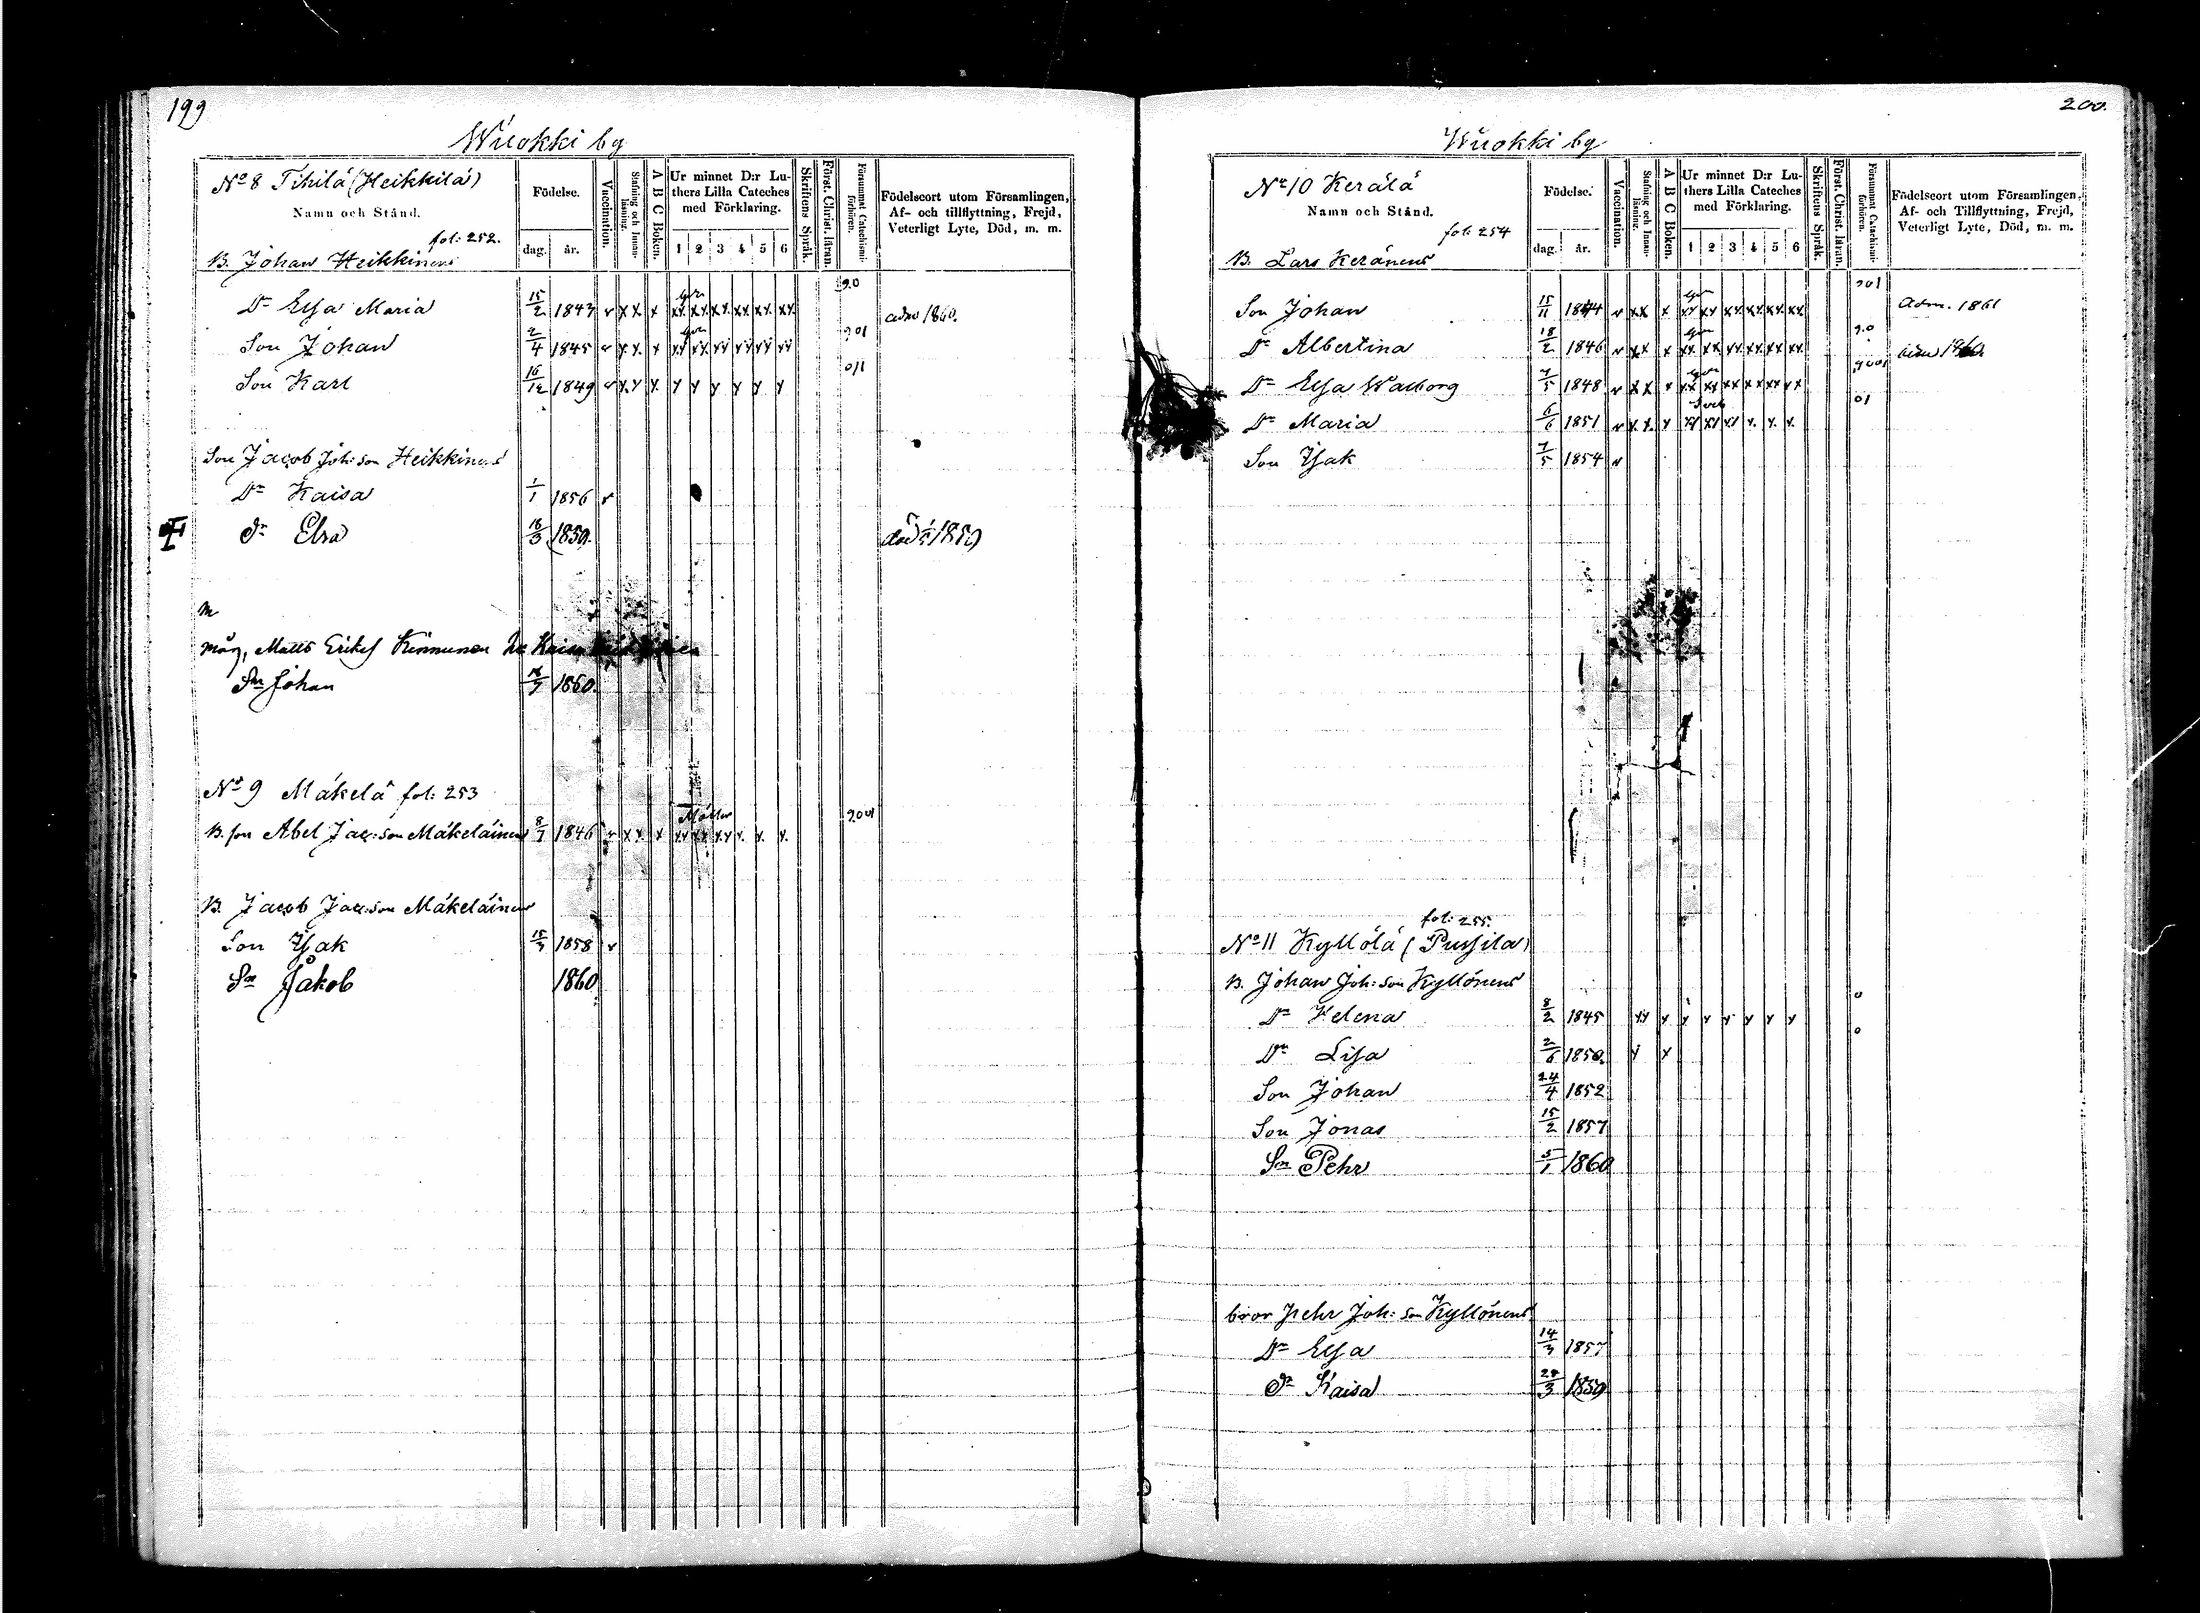 199
Wuokki by
No 8 Tihilä (Heikkilä)
Namn och Stånd.
fol: 252.
B. Johan Heikkinens
Födelse.
dag. år.
Vaccination.
Stafning och Innan-läsning.
A B C Boken.
Ur minnet D:r Lu-
thers Lilla Cateches
med Förklaring.
1 2 3 4 5 6
Skriftens Språk.
Först. Christ. läran.
Försummat Catechismi-förhören.
Födelseort utom Församlingen,
Af- och tillflyttning, Frejd,
Veterligt Lyte, Död, m. m.
Dr Elsa Maria 15/2 1843 v xx x xx xx xx xx xx xx 90 adm 1860.
Son Johan 2/4 1845 v x x. x xx xx xx xx xx xx 901
Son Karl 16/12 1849 v x x x x x x x x x 011
Son Jacob Joh: son Heikkinens
Dr Kaisa 1/1 1856 v
Dr Elsa 18/3 1859. död 1859
m
måg, Matts Eriks Kinnunen
Sn Johan 1860.
No 9 Mäkelä fol: 253
B. son Abel Jac: son Mäkeläinens 8/7 1846 v x x x xx xx xx x. x. x. 9001
B. Jacob Jac: son Mäkeläinens
Son Isak 15/3 1858 v
Sn Jakob 1860
200.
Wuokki by
No 10 Kerälä
Namn och Stånd.
fol: 254
B. Lars Keränens
Födelse.
dag. år.
Vaccination.
Stafning och Innan-läsning.
A B C Boken.
Ur minnet D:r Lu-
thers Lilla Cateches
med Förklaring.
1 2 3 4 5 6
Skriftens Språk.
Först. Christ. läran.
Försummat Catechismi-förhören.
Födelseort utom Församlingen,
Af- och Tillflyttning, Frejd,
Veterligt Lyte, Död, m. m.
Son Johan 15/11 1844 v xx x xx xx xx xx xx xx 901 adm. 1861
Dr Albertina 18/2 1846 v xx x xx xx xx xx xx xx 90
Dr Elsa Walborg 7/5 1848 v x x x xx xx xx xx xx xx
Dr Maria 6/6 1851 v x x. x xx xx xx x. x. x. 01
Son Isak 7/5 1854 v
fol: 255.
No 11 Kyllölä (Pussila)
B. Johan Joh: son Kyllönens
Dr Helena 8/2 1845 xx x x x x x x x 0
Dr Lisa 2/6 1850. x x 0
Son Johan 24/4 1852
Son Jonas 15/2 1857
Sn Pehr 5/1 1860
bror Pehr Joh: son Kyllönens
Dr Elsa 14/3 1857
Dr Kaisa 28/3 1859